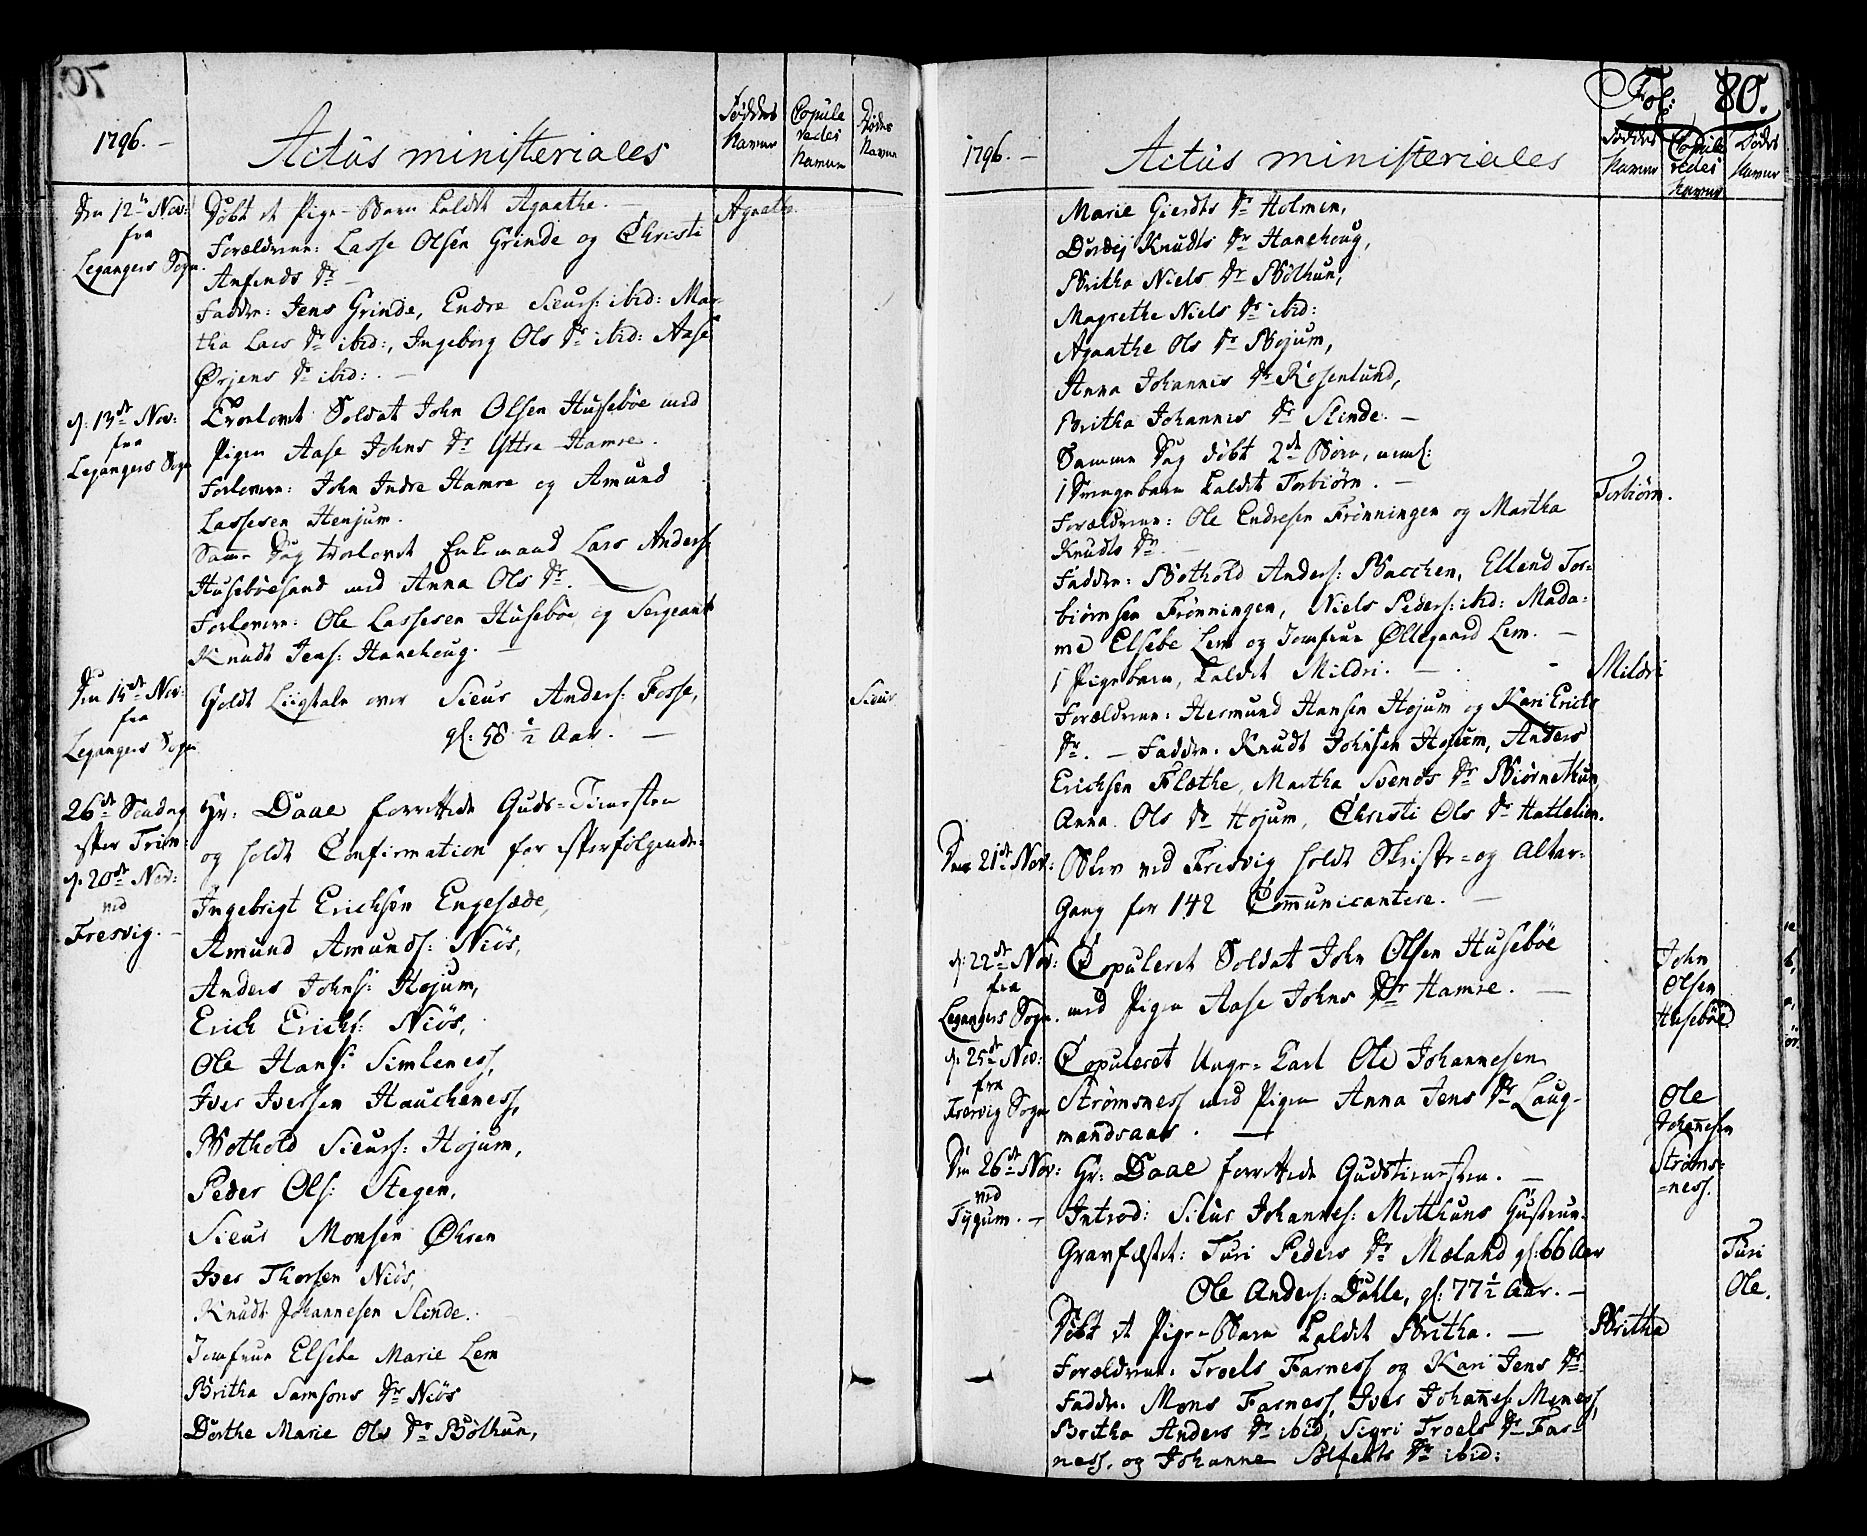 1796. —
Actus ministeriales
Føddes Navne
Copuleredes Navne
Dødes Navne
Den 12te Nov: fra Legangers Sogn.
Døbt et Pige-Barn kaldet Agaathe. —
Agaathe
Forældrene: Lasse Olsen Grinde og Christi
Anfinds Dr —
Faddre: Jens Grinde, Endre Sieurs: ibid: Mar-
tha Lars Dr ibid:, Ingeborg Ols Dr ibid: Aase
Ørjens Dr ibid: —
d: 13de Nov: fra Legangers Sogn
Trolovet Soldat John Olsen Husebøe med
Pigen Aase Johns Dr Yttre Hamre.
Forlovere: John Indre Hamre og Amund
Lassesen Henjum.
Samme Dag trolovet Enkemand Lars Anders:
Husebøesand med Anna Ols Dr.
Forlovere: Ole Lassesen Husebøe og Sergeant
Knudt Jens: Hanehoug. —
Den 15de Nov: fra Legangers Sogn
Holdt Liigtale over Sieur Anders: Fosse,
gl: 58 ½ Aar. —
Sieur
26de Søndag efter Trin: d: 20de Nov: ved Fresvig. —
Hr: Daae forrettede Guds-Tienesten
og holdt Confirmation for efterfølgende:
Ingebrigt Erichsen Engesæde,
Amund Amunds: Niøs,
Anders Johns: Højum,
Erich Erichs: Niøs,
Ole Hans: Simleness,
Iver Iversen Hauckeness,
Bothold Sieurs: Hojum,
Peder Ols: Stegen,
Sieur Monsen Øhren
Iver Thorsen Niøs,
Knudt Johannesen Slinde.
Jomfrue Elsebe Marie Lem
Britha Samsons Dr Niøs
Dorthe Marie Ols Dr Bølhun,
Fol: 80.
1796. —
Actus ministeriales
Føddes Navne
Copuleredes Navne
Dødes Navne
Marie Gierdts Dr Holmen,
Dordej Knudts Dr Hanehoug,
Britha Niels Dr Bølhun,
Magrethe Niels Dr ibid:
Agaathe Ols Dr Bojum,
Anna Johannis Dr Rosenlund,
Britha Johannis Dr Slinde. —
Samme Dag døbt 2de Børn, neml:
1 Drengebarn kaldet Torbiørn. —
Torbiørn.
Forældrene: Ole Endresen Frønningen og Martha
Knudts Dr. —
Faddre: Bothold Anders: Bacchen, Ellend Tor-
biørnsen Frønningen, Niels Peders: ibid: Mada-
me Elsebe Lem og Jomfrue Øllegaard Lem. —
1 Pigebarn, kaldet Mildri. —
Mildri
Forældrene: Hermund Hansen Hojum og Kari Erichs
Dr. — Faddre: Knudt Johnsen Hojum, Anders
Erichsen Flæthe, Martha Svends Dr Biørnethun,
Anna Ols Dr Hojum, Christi Ols Dr Hattelien.
Den 21de Nov:
Blev ved Fresvig holdt Skrifte- og Altar-
Gang for 142 Communicantere. —
d: 22de Nov: fra Legangers Sogn.
Copuleret Soldat John Olsen Husebøe
med Pigen Aase Johns Dr Hamre. —
John Olsen Husebøe
d: 25de Nov: fra Fresvig Sogn
Copuleret Unge-Karl Ole Johannesen
Strømsness med Pigen Anna Jens Dr Laug-
mandsaas. —
Ole Johannesen Strøms-
=ness.
Den 26de Nov: ved Tygum. —
Hr: Daae forrettede Gudstienesten. —
Introd: Sieur Johannes: Mitthuns Hustrue.
Gravfæstet: Turi Peders Dr Mæland gl: 66 Aar
Turi
Ole Anders: Dahle, gl: 77 ½ Aar. —
Ole.
Døbt et Pige-Barn kaldet Britha. —
Britha
Forældrene: Troels Farness og Kari Jens Dr
Faddre: Mons Farness, Iver Johannes: Meness,
Britha Anders Dr ibid, Sigri Troels Dr Far-
ness, og Johanne Solfests Dr ibid: